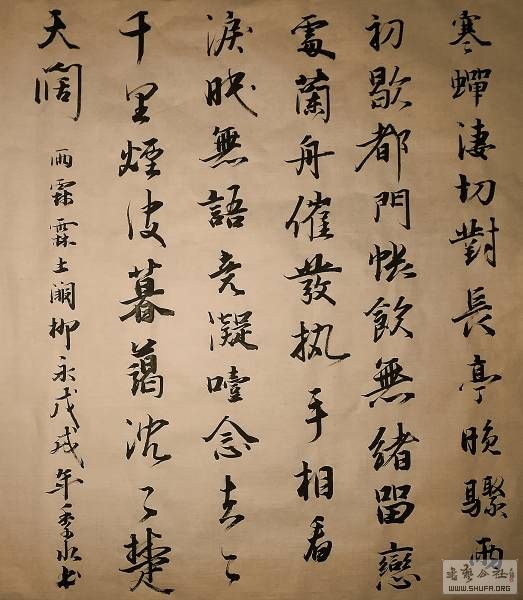 寒蟬淒切對長亭晚驟雨
初歇都門帳飲無緒留戀
處蘭舟催發執手相看
淚眼無語竟凝噎念去々
千里煙波暮靄沈々楚
天闊
雨霖霖上闋柳永戊戌年季
书艺公社
WWW.SHUFA.ORG